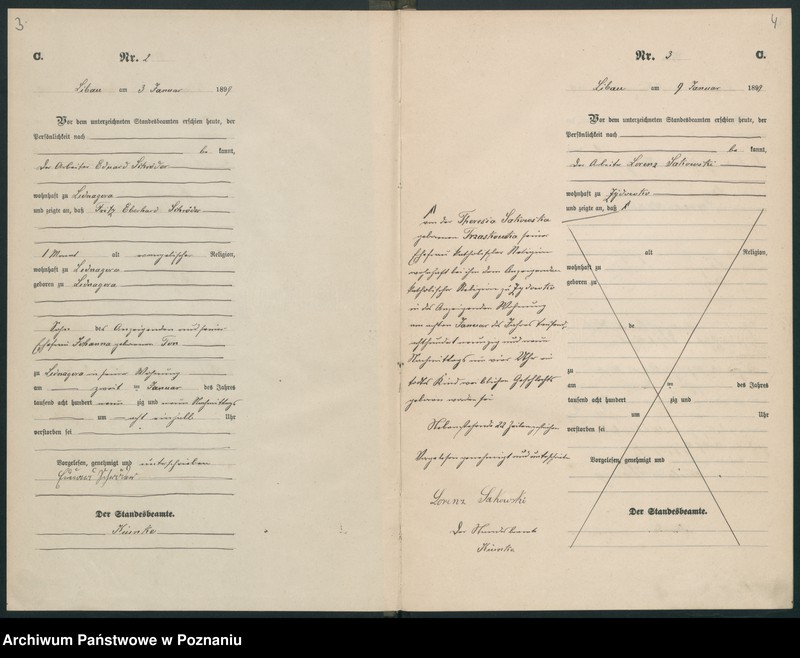 3
C.
Nr. 2
Libau am 3 Januar 1899
Vor dem unterzeichneten Standesbeamten erschien heute, der
Persönlichkeit nach
be kannt,
der Arbeiter Eduard Schröder
wohnhaft zu Lednagora
und zeigte an, daß Fritz Eberhard Schröder
1 Monat alt evangelischer Religion,
wohnhaft zu Lednagora
geboren zu Lednagora
Sohn des Anzeigenden und seiner
Ehefrau Johanna geborenen
zu Lednagora in seiner Wohnung
am zweit en Januar des Jahres
tausend acht hundert neun zig und neun Nachmittags
um acht einhalb Uhr
verstorben sei
Vorgelesen, genehmigt und unterschrieben
Eduard Schröder
Der Standesbeamte.
4
Nr. 3
C.
Libau am 9 Januar 1899
Vor dem unterzeichneten Standesbeamten erschien heute, der
Persönlichkeit nach
be kannt,
der Arbeiter Lorenz Sakowski
wohnhaft zu Zydowko
und zeigte an, daß
alt Religion,
wohnhaft zu
geboren zu
de
zu
am ten des Jahres
tausend acht hundert zig und
um Uhr
verstorben sei
Vorgelesen, genehmigt und
Der Standesbeamte.
von der Theresia Sakowska
geborenen seiner
Ehefrau katholischer Religion
wohnhaft bei ihm dem Anzeigenden
katholischer Religion zu Zydowko
in des Anzeigenden Wohnung
am achten Januar des Jahres tausend
achthundert neunzig und neun
Nachmittags um vier Uhr ein
todtes Kind weiblichen Geschlechts
geboren worden sei
Vorgelesen genehmigt und unterschrieben
Lorenz Sakowski
Der Standesbeamte
Archiwum Państwowe w Poznaniu